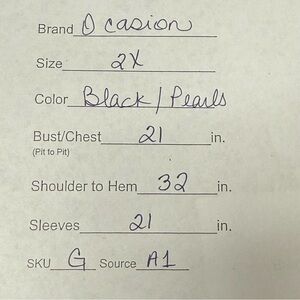 Brand Ocasion
Size 2X
Color Black/Pearls
Bust/Chest 21 in.
(Pit to Pit)
Shoulder to Hem 32 in.
Sleeves 21 in.
SKU G Source A1